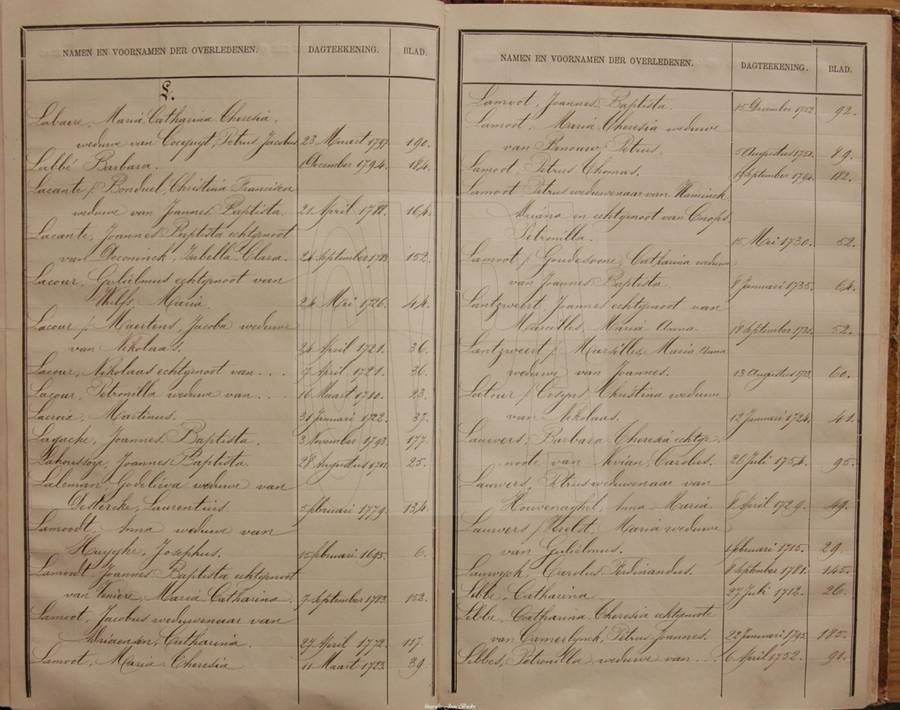 NAMEN EN VOORNAMEN DER OVERLEDENEN. DAGTEEKENING. BLAD.
L.
Labaere, Maria Catharina Theresia,
weduwe van Petrus Jacobus 23 Maart 1797. 190.
Labbé Barbara. December 1794. 184.
Lacante / Bonduel, Christina Francisca
weduwe van Joannes Baptista. 21 April 1788. 164.
Lacante, Joannes Baptista echtgenoot
van Deconinck, Isabella Clara. 24 September 152.
Lacour, Gulielmus echtgenoot van
Maria. 24 Mei 1726. 44.
Lacour / Maertens, Jacoba weduwe
van Nikolaas. 24 April 1721. 36.
Lacour, Nikolaas echtgenoot van . . . 7 April 1721. 36.
Lacour, Petronilla weduwe van . . . 16 Maart 1710. 23.
Lacroix, Martinus. 31 Januari 1722. 37.
Lagache, Joannes Baptista. 3 November 1793. 177.
Joannes Baptista. 28 Augustus 25.
Laleman, Godelieva weduwe van
Demercke, Laurentius. Februari 1779. 134.
Lamoodt, Anna weduwe van
Huyghe, Josephus. 15 Februari 1695. 6.
Lamoodt Joannes Baptista echtgenoot
van Maria Catharina. 7 September 1783. 152.
Lamoot, Jacobus weduwenaar van
Adriaensen, Catharina. 27 April 1772. 117.
Lamoot, Maria Theresia 11 Maart 1723. 39.
NAMEN EN VOORNAMEN DER OVERLEDENEN. DAGTEEKENING. BLAD.
Lamoot, Joannes Baptista. 15 December 1752. 92.
Lamoot, Maria Theresia weduwe
van Petrus. 5 Augustus 1751. 89.
Lamoot, Petrus Thomas. September 1794. 182.
Lamoot Petrus weduwenaar van
Adriana en echtgenoot van
Petronilla. 15 Mei 1730. 52.
Lamoot / Goudesoone, Catharina weduwe
van Joannes Baptista. 8 Januari 1735. 64.
Lantzweert Joannes echtgenoot van
Marcilles, Maria Anna. 18 September 1730. 52.
Lantzweert / Marsilles, Maria Anna
weduwe van Joannes. 13 Augustus 60.
Latour / Christina weduwe
van Nikolaas. 12 Januari 1724. 41.
Lauwers, Barbara Theresia echtge-
noote van Carolus. 20 Juli 1754. 95.
Lauwers, Petrus weduwenaar van
Houvenaghel, Anna Maria. 8 April 1729. 49.
Lauwers / Hulst, Maria weduwe
van Gulielmus. Februari 1715. 29.
Lauwyck, Carolus Ferdinandus. 8 September 1781. 145.
Libbe, Catharina 27 Juli 1712. 26.
Libbe, Catharina Theresia echtgenoote
van Camerlynck, Petrus Joannes. 22 Januari 1795. 185.
Libbes, Petronilla weduwe van . . . 6 April 1752. 91.